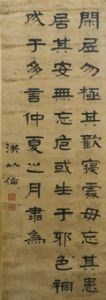 閒居勿極其歡寢處毋忘其患
居其安無忘危或生于邪色禍
成于多言仲夏之月書為
洪以倫